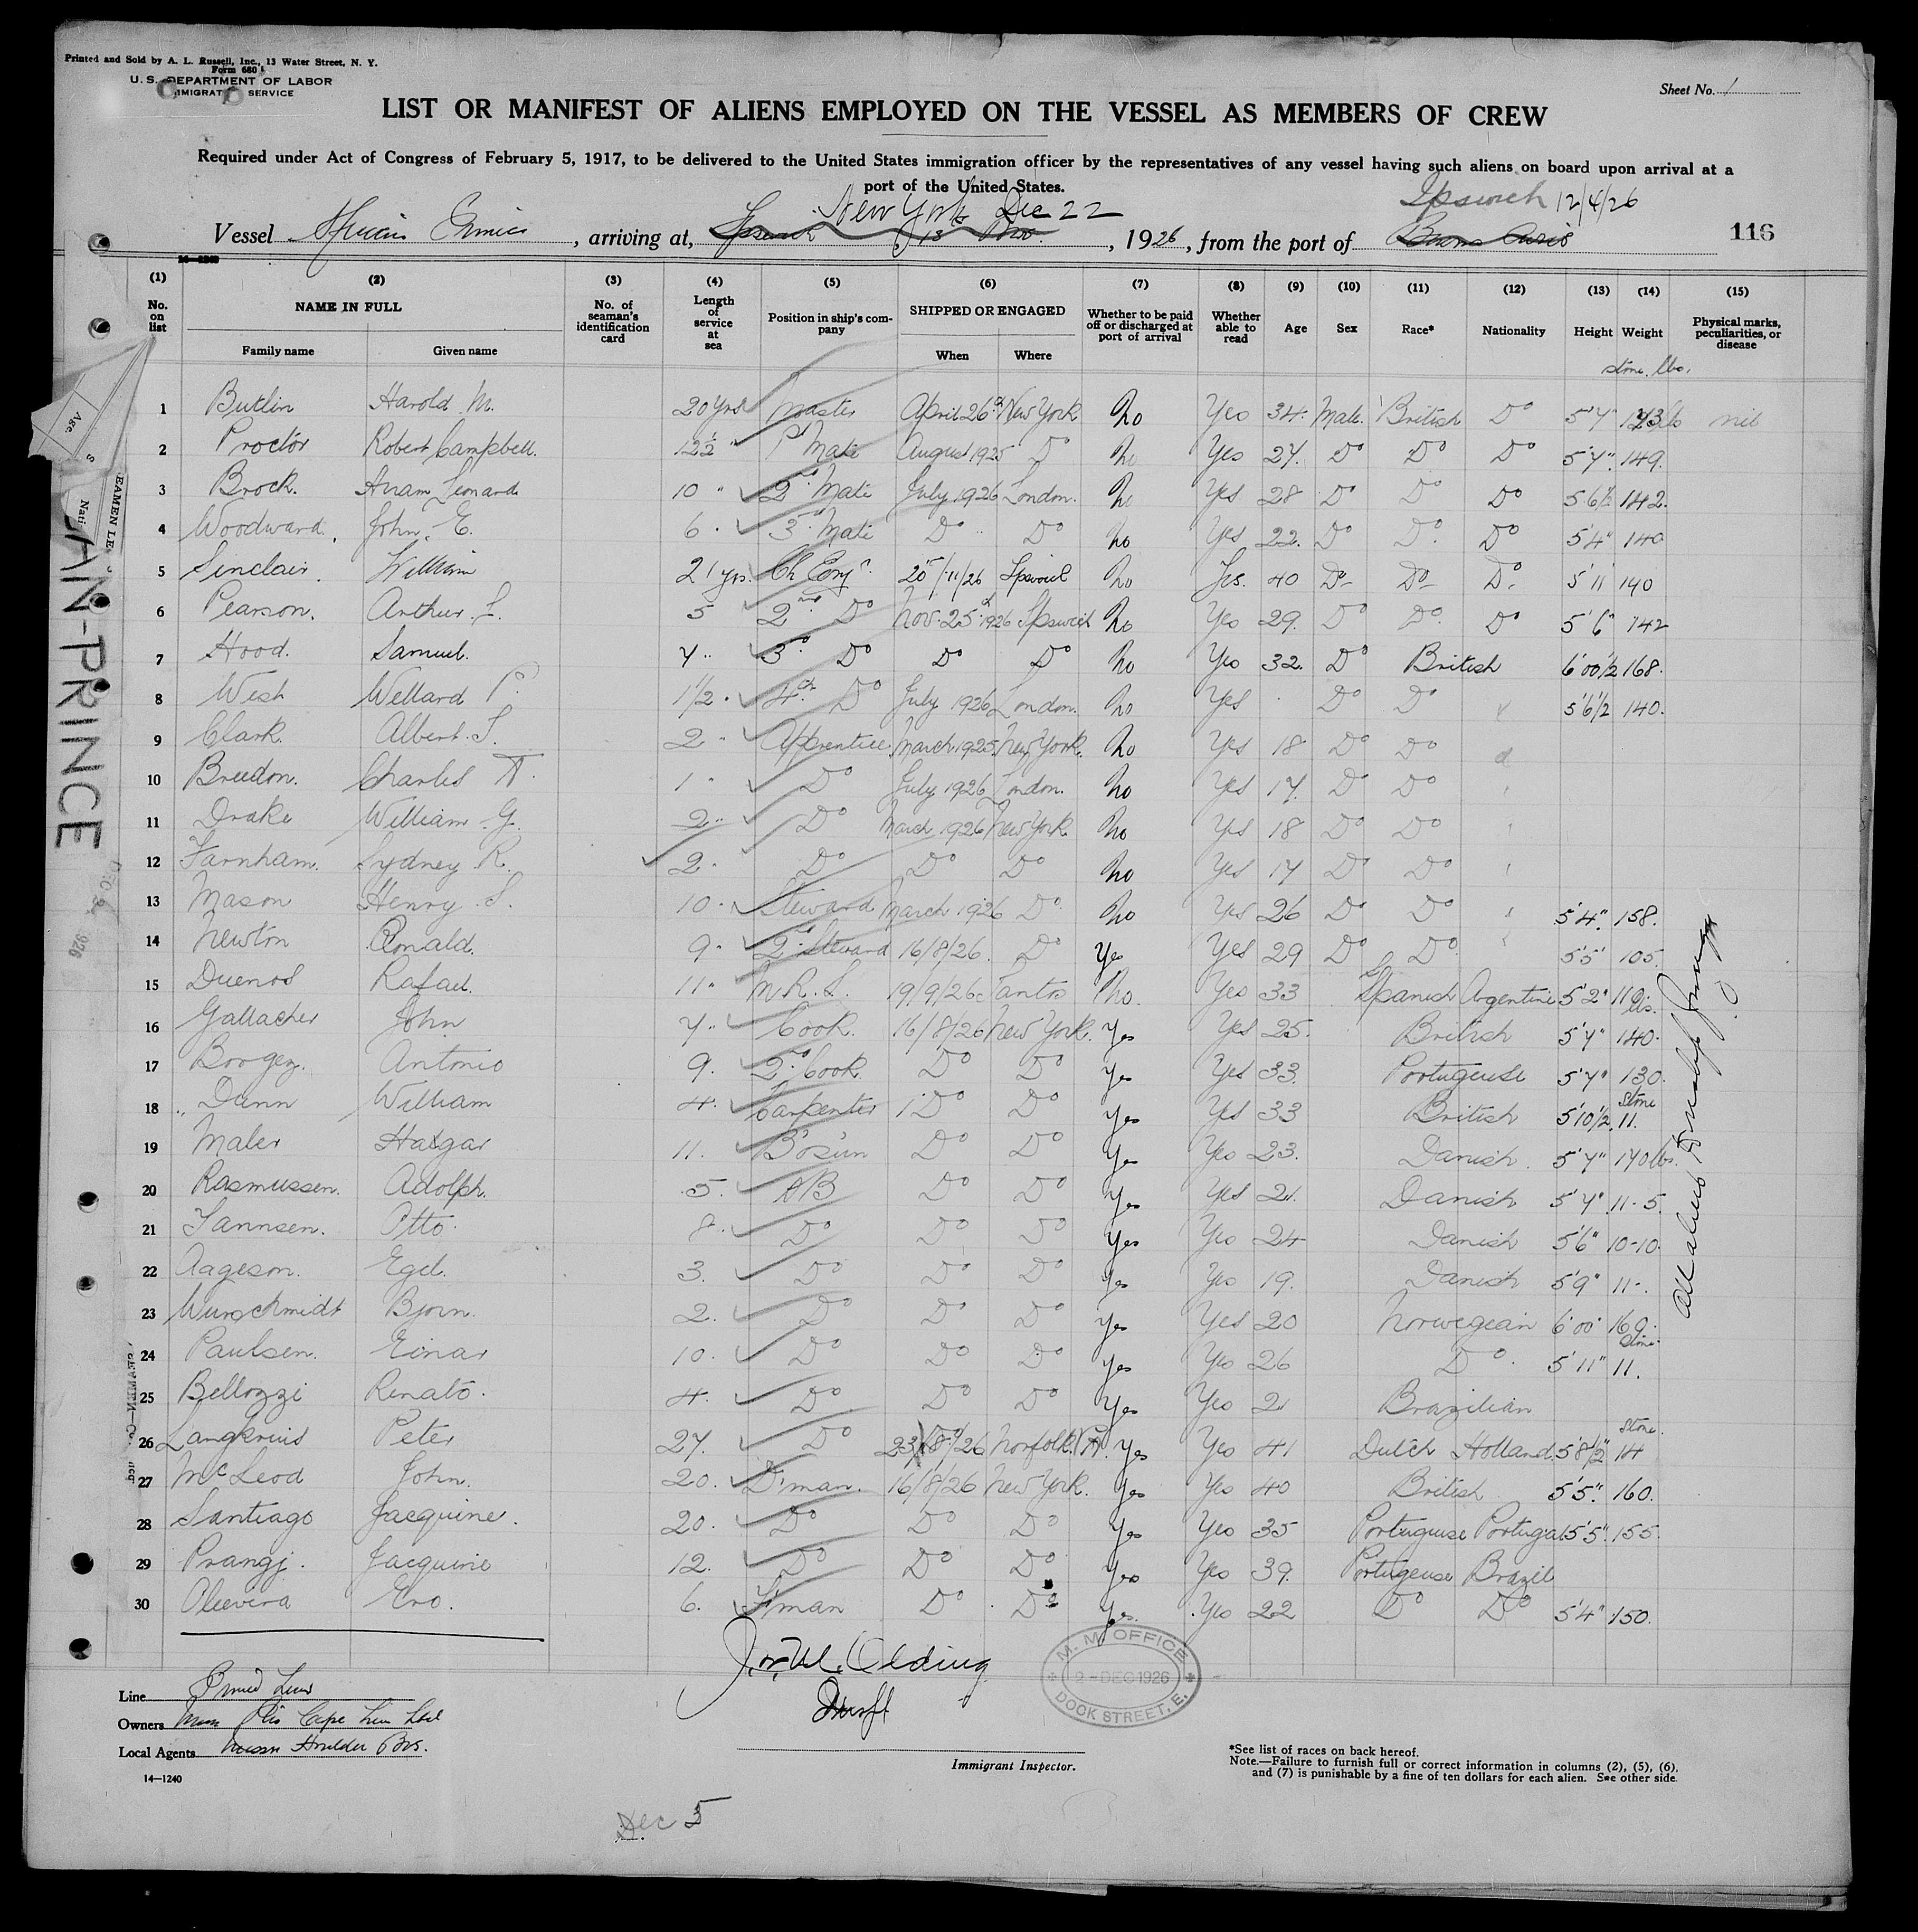 Printed and Sold by A. L. Russell, Inc., 13 Water Street, N. Y.
Form 680
U. S. DEPARTMENT OF LABOR
IMMIGRATION SERVICE
Sheet No. 1
LIST OR MANIFEST OF ALIENS EMPLOYED ON THE VESSEL AS MEMBERS OF CREW
Required under Act of Congress of February 5, 1917, to be delivered to the United States immigration officer by the representatives of any vessel having such aliens on board upon arrival at a
port of the United States.
New York Dec 22 Ipswich 12/4/26
Vessel African Prince, arriving at, Ipswich, 13 Nov., 1926, from the port of Buenos Aires 116
(1) (2) (3) (4) (5) (6) (7) (8) (9) (10) (11) (12) (13) (14) (15)
No. on list NAME IN FULL Family name Given name No. of seaman's identification card Length of service at sea Position in ship's company SHIPPED OR ENGAGED When Where Whether to be paid off or discharged at port of arrival Whether able to read Age Sex Race* Nationality Height Weight Physical marks, peculiarities, or disease
stone. lbs.
1 Butlin Harold M. 20 yrs Master April 26 New York No Yes 34 Male British Do 5'7" nil
2 Proctor Robert Campbell. 12½ " 1st Mate August 1925 Do No Yes 27. Do Do Do 5'7" 149.
3 Brock. Leonard 10 " 2nd Mate July 1926 London. No Yes 28 Do Do Do 5'6½ 142.
4 Woodward. John. E. 6 . 3rd Mate Do Do No Yes 22. Do Do. Do 5'4" 140
5 Sinclair William 21 yrs. Ch Engr. 25/11/26 Ipswich No Yes. 40 Do- Do- Do- 5'11 190
6 Pearson. Arthur. L. 5 2nd Do Nov. 25th 1926 Ipswich No Yes 29. Do Do. Do 5'6" 142
7 Hood. Samuel. 7 .. 3rd Do Do Do No Yes 32. Do British 6'00½ 168.
8 West Wellard P. 1½ . 4th Do July 1926 London. No Yes Do Do 5'6½ 140.
9 Clark. Albert. S. 2 " Apprentice March 1925 New York. No Yes 18 Do Do
10 Breedon. Charles 1 " Do July 1926 London. No Yes 17. Do Do
11 Drake William. G. 2 .. Do March 1926 New York No Yes 18 Do Do
12 Farnham. Sydney R. 2 . Do Do Do No Yes 17 Do Do
13 Mason Henry. S. 10 . Steward March 1926 Do No Yes 26 Do Do 5'4". 158.
14 Newton Ronald. 9 " 2nd Steward 16/8/26. Do Yes Yes 29 Do Do 5'5" 105.
15 Duenos Rafael. 11 " M. R. S. 19/9/26 Santos No. Yes 33 Spanish Argentine 5'2" 110 lbs.
16 Gallacher John 7 .. Cook. 16/8/26 New York. Yes Yes 25. British 5'7" 140.
17 Borgez. Antonio 9. 2nd Cook Do Do Yes Yes 33. Portugeuse 5'7" 130.
18 Dunn William 4. Carpenter Do Do Yes Yes 33 British 5'10½ Stone 11.
19 Maler 11. Bo'sun Do Do Yes Yes 23. Danish. 5'7" 170 lbs.
20 Rasmussen. Adolph. 5. AB Do Do Yes Yes 21. Danish 5'7" 11-5.
21 Jannsen. Otto. 8. Do Do Do Yes Yes 24 Danish 5'6" 10-10.
22 Aageson. Egel. 3. Do Do Do Yes Yes 19. Danish 5'9" 11-.
23 Wunschmidt Bjorn. 2. Do Do Do Yes Yes 20 Norwegian 6'00" 160.
24 Paulsen. Einar 10. Do Do Do Yes Yes 26 Do. 5'11" Stone 11.
25 Bellozzi Renato. 4. Do Do Do Yes Yes 21 Brazilian
26 Peter 27. Do 23/8/26 Norfolk Yes Yes 41 Dutch Holland. 5'8½" Stone 14
27 McLeod John. 20. D'man. 16/8/26 New York. Yes Yes 40 British 5'5". 160.
28 Santiago Jacquine. 20. Do Do Do Yes Yes 35 Portuguise Portugal 5'5". 155.
29 Prangj. Jacquine 12. Do Do Do Yes Yes 39. Portugeuse Brazil
30 Oleevera Ero. 6. F'man Do Do Yes. Yes 22 Do Do 5'4" 150.
AN-PRINCE
M. M. OFFICE
2 - DEC 1926
DOCK STREET, E.
Line Prince Line
Owners Mess Rio Cape Line Ltd
Local Agents Messrs Houlder Bros.
14—1240
Immigrant Inspector.
*See list of races on back hereof.
Note.—Failure to furnish full or correct information in columns (2), (5), (6),
and (7) is punishable by a fine of ten dollars for each alien. See other side.
Dec 5